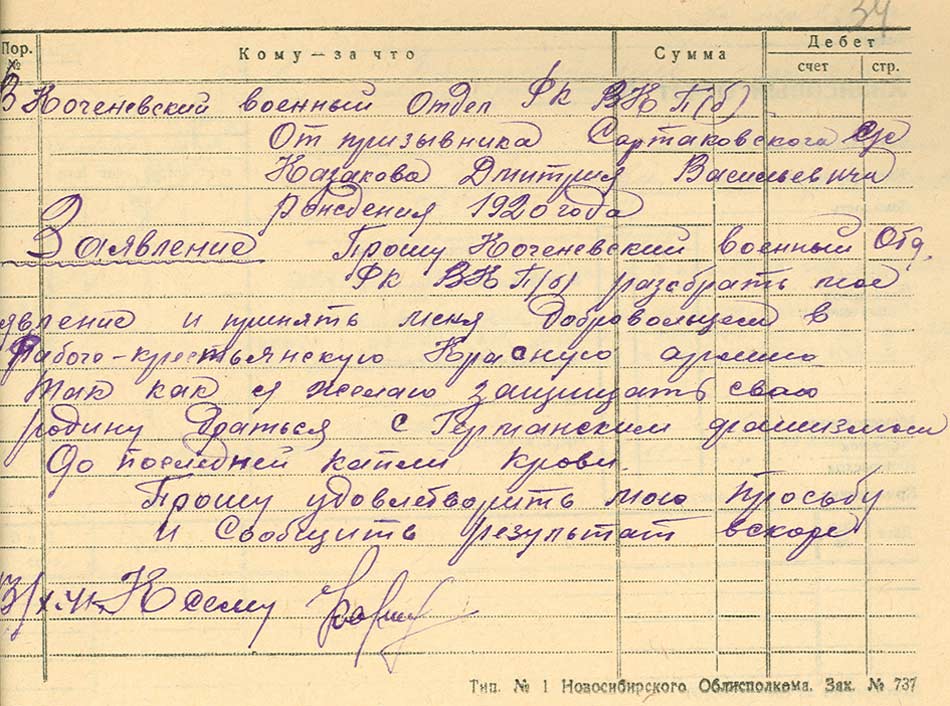 34
Пор. № Кому — за что Сумма Дебет
счет стр.
В Коченевский военный Отдел РК ВКП(б)
От призывника Сартаковского с/с
Казакова Дмитрия Васильевича
рождения 1920 года
Заявление Прошу Коченевский военный Отд.
РК ВКП(б) разобрать мое
явление и принять меня добровольцем в
Рабоче-крестьянскую Красную армию
Так как я желаю защищать свою
родину Драться с Германским фашизмом
До последней капли крови.
Прошу удовлетворить мою просьбу
и Сообщить результат вскоре
К сему
Тип. № 1 Новосибирского Облисполкома. Зак. № 737